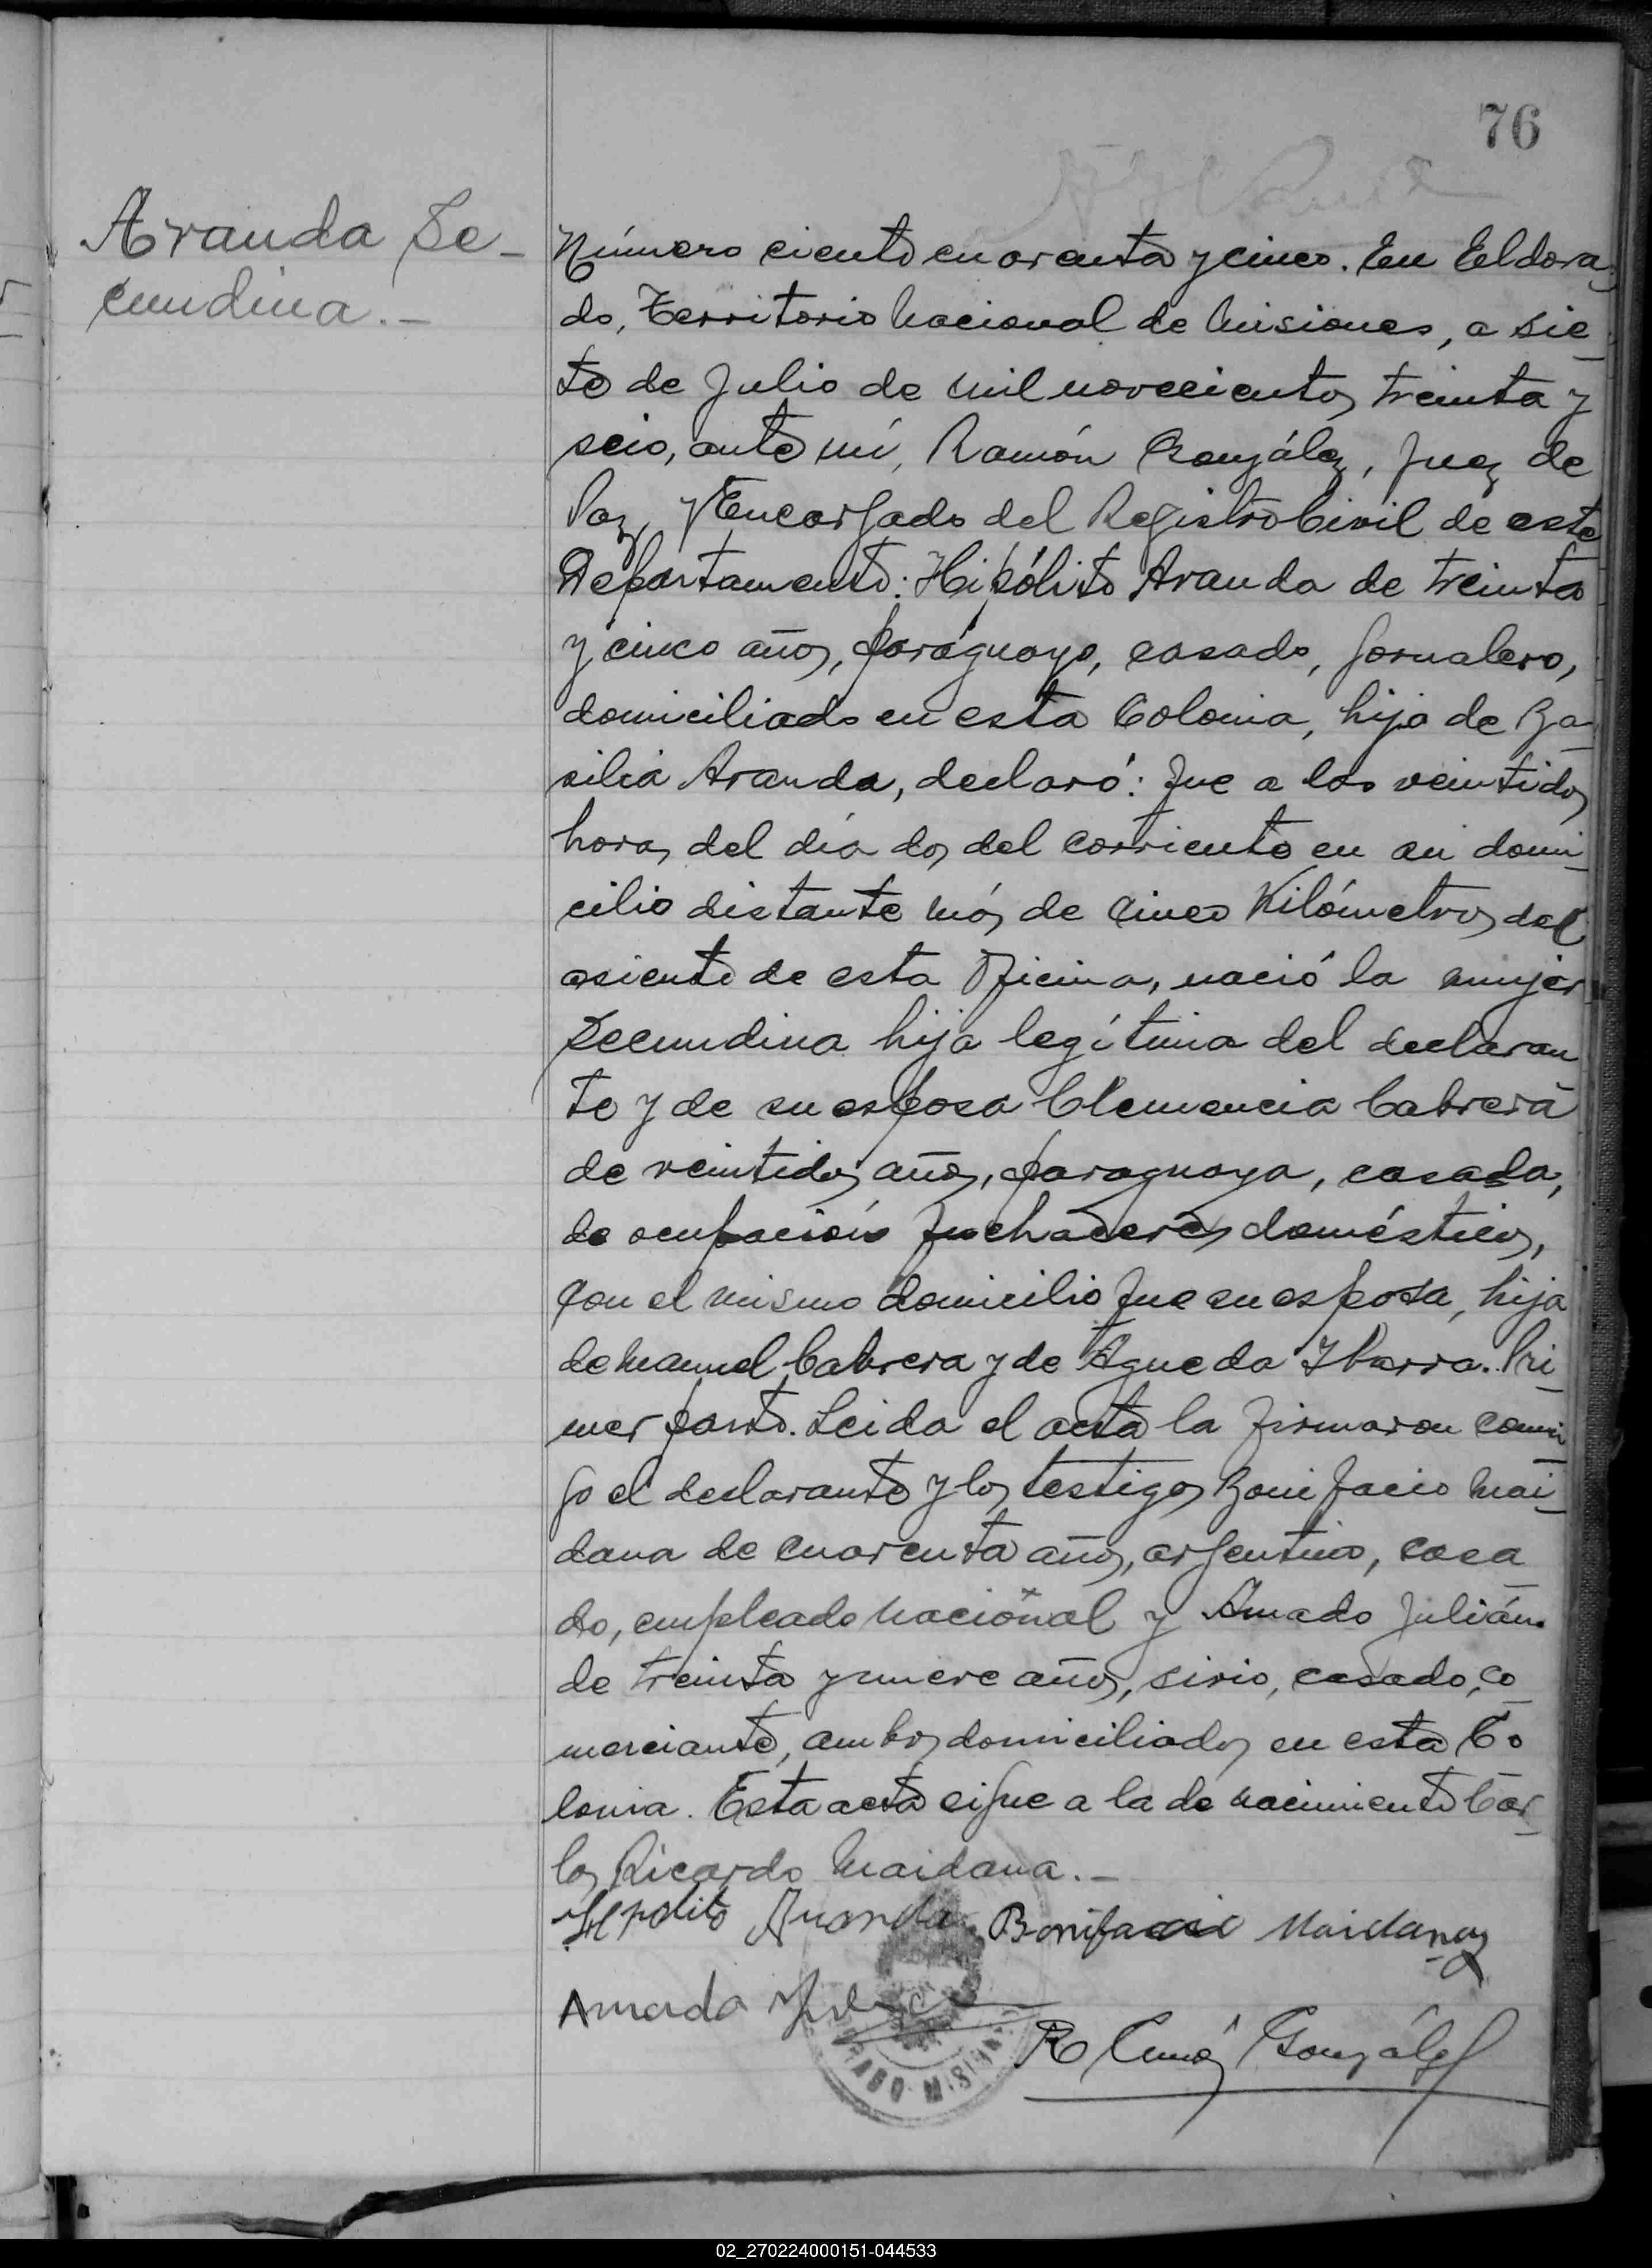 76
Aranda Se-
cundina.-
Número ciento cuarenta y cinco. En Eldora-
do, Territorio Nacional de Misiones, a sie-
te de Julio de mil novecientos treinta y
seis, ante mí, Ramón González, Juez de
Paz y Encargado del Registro Civil de este
Departamento: Hipólito Aranda de treinta
y cinco años, paraguayo, casado, jornalero,
domiciliado en esta Colonia, hijo de Ba-
silia Aranda, declaró: Que a las veintidos
horas del día dos del corriente en su domi-
cilio distante más de cinco Kilómetros del
asiento de esta Oficina, nació la mujer
Secundina hija legítima del declaran
te y de su esposa Clemencia Cabrera
de veintidos años, paraguaya, casada,
de ocupación quehaceres domésticos,
con el mismo domicilio que su esposa, hija
de Manuel Cabrera y de Agueda Ibarra. Pri-
mer parto. Leida el acta la firmaron conmi-
go el declarante y los testigos Bonifacio Mai-
dana de cuarenta años, argentino, casa-
do, empleado nacional y Amado Julián
de treinta y nueve años, sirio, casado, co-
merciante, ambos domiciliados en esta Co-
lonia. Esta acta sigue a la de nacimiento Car-
los Ricardo Maidana.-
Hipolito Aranda Bonifacio Maidana
Amado
Ramón González
02_270224000151-044533